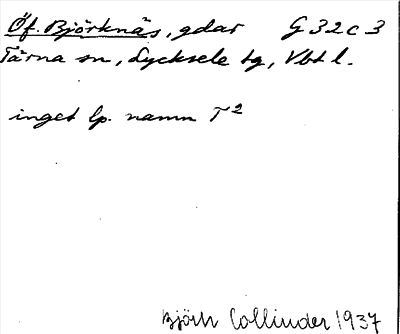 Öf. Björknäs, gdar G 32 c 3
Tärna sn, Lycksele tg, Vbtl.
inget lp. namn T²
Björn Collinder 1937